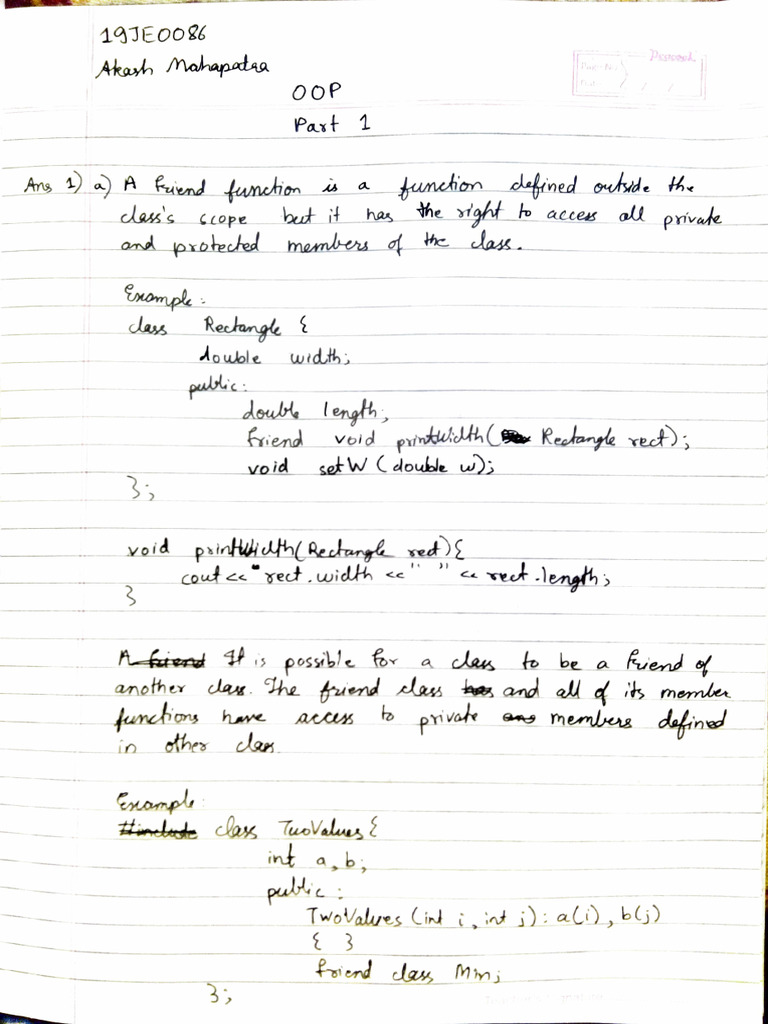 19JE0086
Akash Mahapatra
OOP
Part 1
Ans 1) a) A friend function is a function defined outside the
class's scope but it has the right to access all private
and protected members of the class.
Example:
class Rectangle {
double width;
public:
double length;
friend void printWidth( Rectangle rect);
void setW (double w);
};
void printWidth(Rectangle rect){
cout << rect.width << " " << rect.length;
}
A friend It is possible for a class to be a friend of
another class. The friend class has and all of its member
functions have access to private members defined
in other class.
Example:
#include class TwoValues {
int a, b;
public:
TwoValues (int i, int j): a(i), b(j)
{ }
friend class Mm;
};